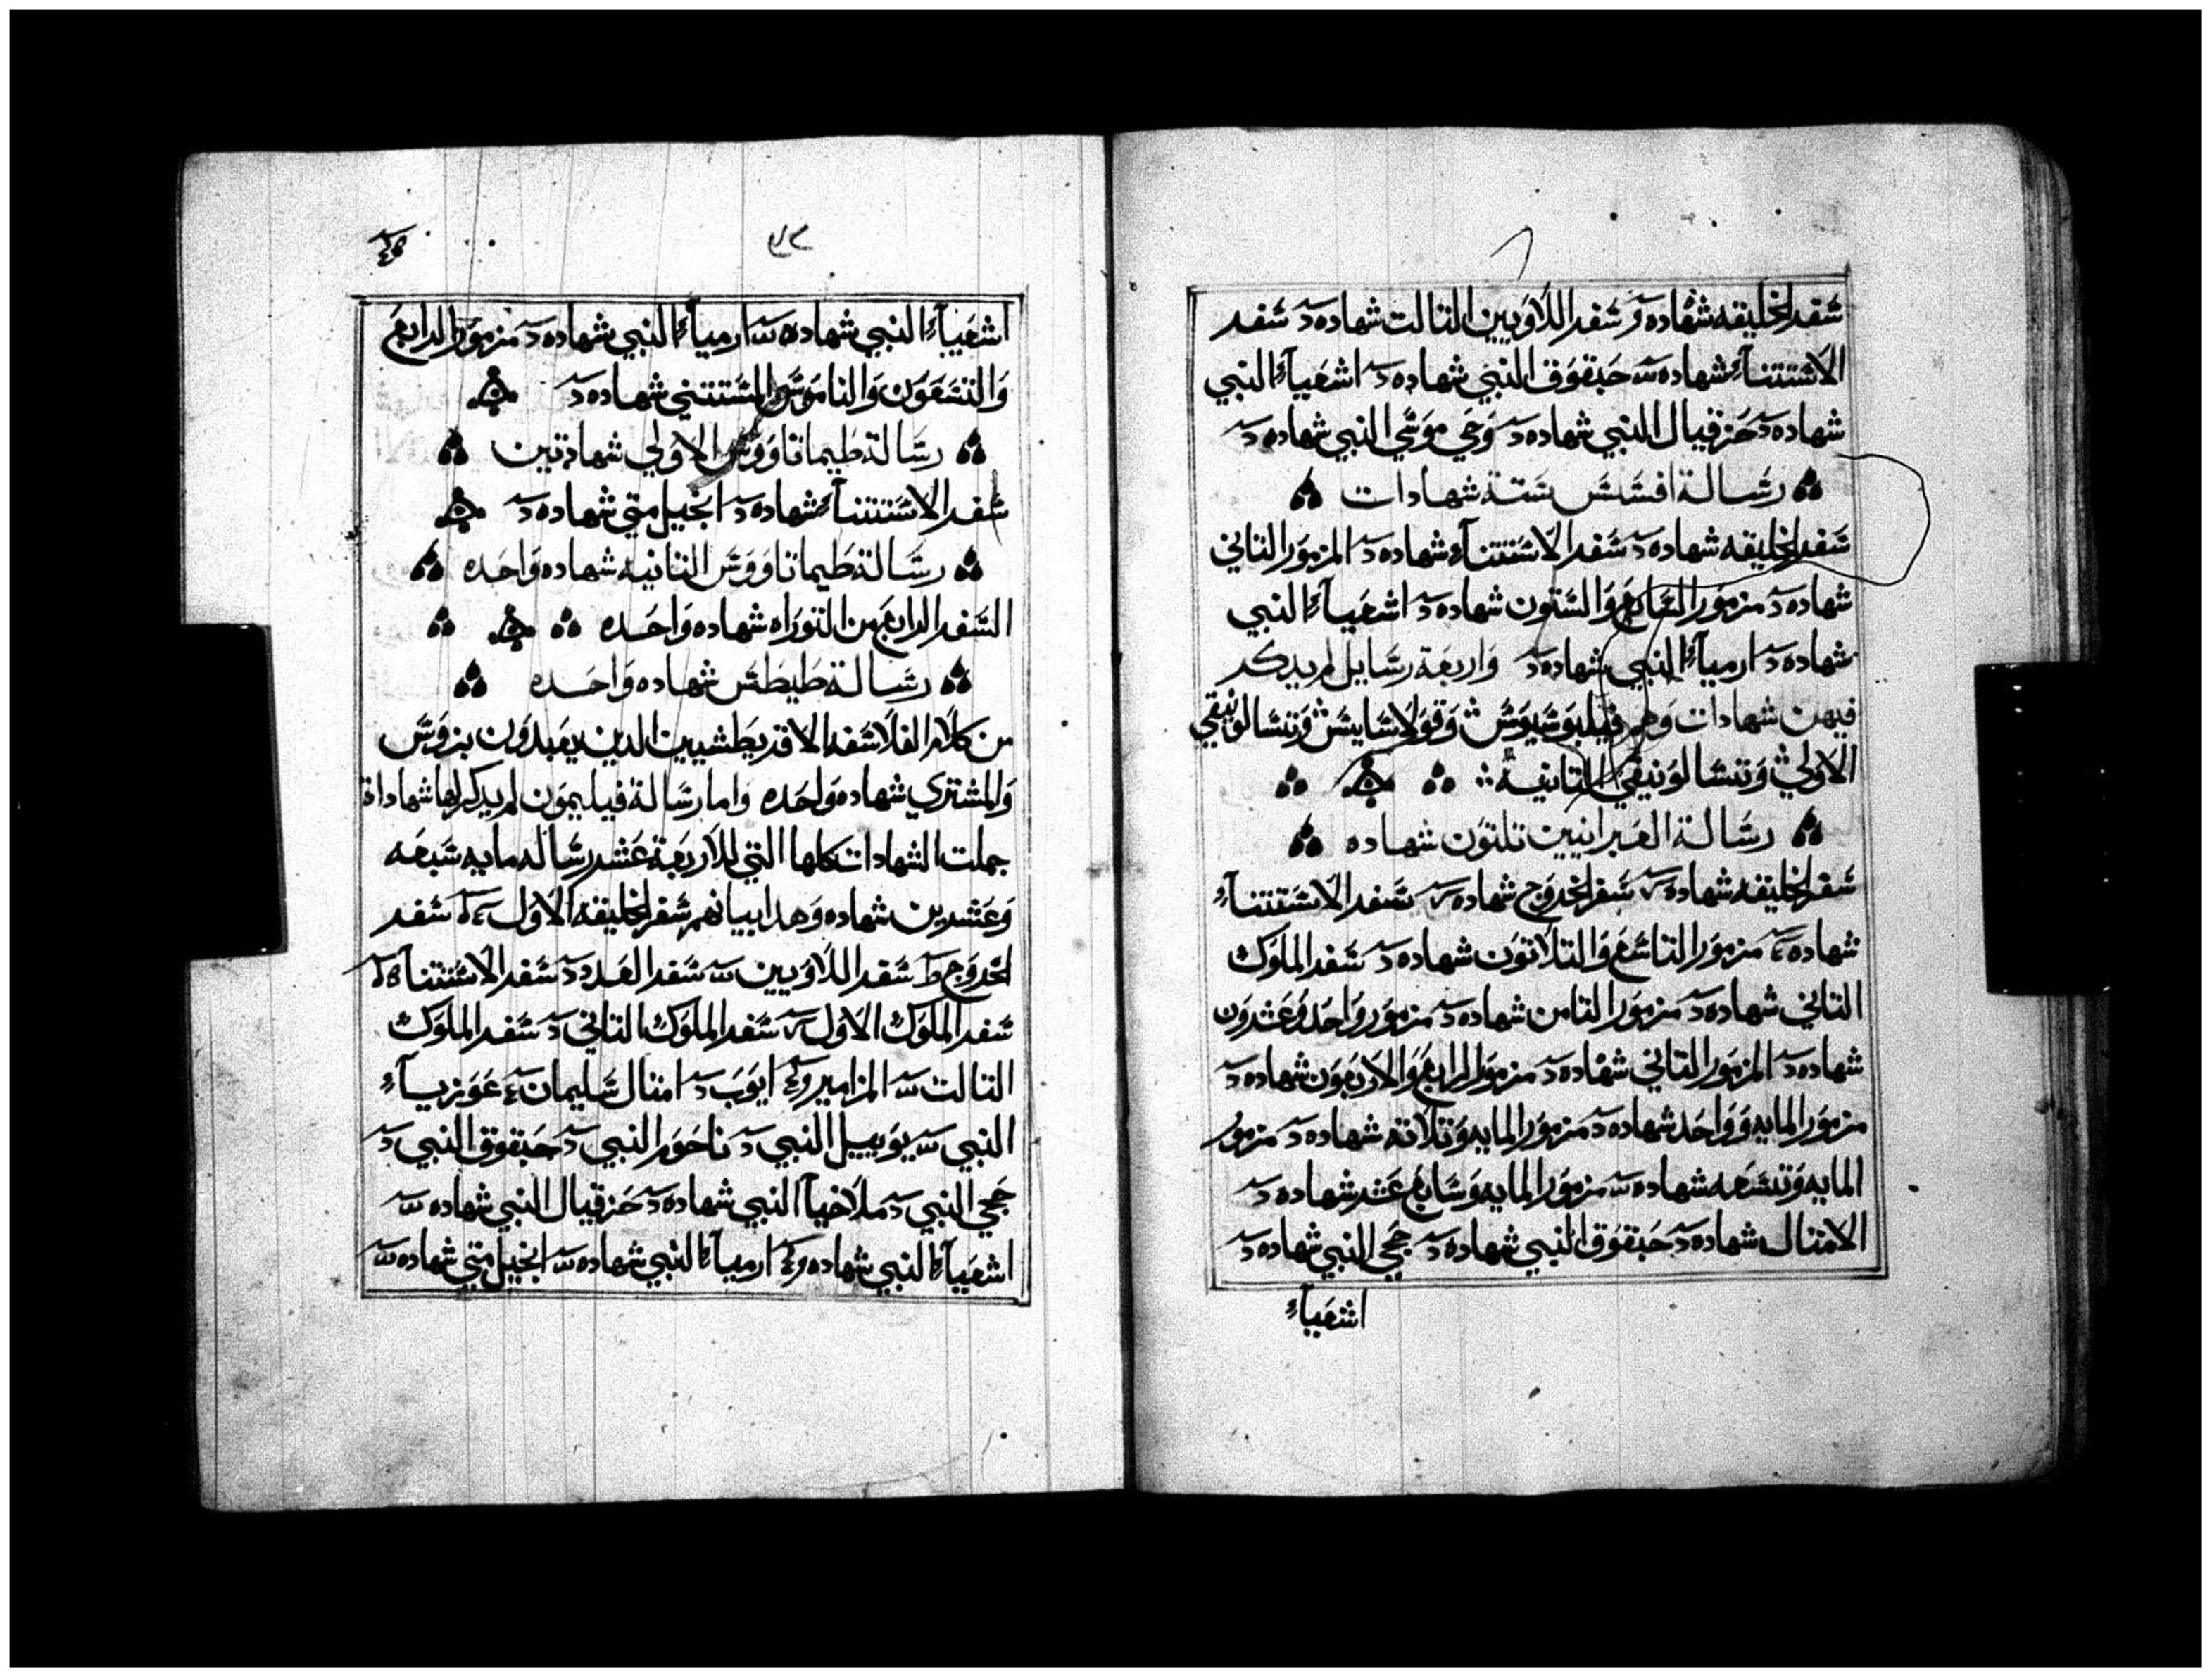 سفر الخليقه شهاده و سفر اللاويين التالت شهاده د سفر
الاستتنآء شهاده حبقوق النبي شهاده د اشعيآء النبي
شهاده د حزقيال النبي شهاده د وحي موسي النبي شهاده د
رسالة افسس ستة شهادات
سفر الخليقه شهاده د سفر الاستتنآء شهاده د المزمور التاني
شهاده د مزمور السابع والستون شهاده د اشعيآء النبي
شهاده د ارميآء النبي شهاده د واربعة رسايل لم يدكر
فيهن شهادات وهم فيلبوسيوس وقولاسايس وتسالونيقي
الاولي وتسالونيقي التانية
رسالة العبرانيين تلتون شهاده
سفر الخليقه شهاده سفر الخروج شهاده سفر الاستتنآء
شهاده مزمور التاسع والتلاتون شهاده د سفر الملوك
التاني شهاده د مزمور التامن شهاده د مزمور واحد وعشرون
شهاده د المزمور التاني شهاده د مزمور الرابع والاربعون شهاده د
مزمور المايه وواحد شهاده د مزمور المايه وتلاته شهاده د مزمور
المايه وتسعه شهاده مزمور المايه وسابع عشر شهاده د
الامتال شهاده د حبقوق النبي شهاده د حجي النبي شهاده د
اشعيآء
اشعيآء النبي شهاده ارميآء النبي شهاده د مزمور الرابع
والتسعون والناموس المستتني شهاده د
رسالة طيماتاووس الاولي شهادتين
سفر الاستتنآء شهاده د انجيل متي شهاده د
رسالة طيماتاووس التانيه شهاده واحده
السفر الرابع من التوراه شهاده واحده
رسالة طيطس شهاده واحده
من كلام الفلاسفه الاقريطشيين الدين يعبدون بزوس
والمشتري شهاده واحده واما رسالة فيليمون لم يدكر لها شهاداة
جملت الشهادات كلها التي للاربعة عشر رساله مايه سبعه
وعشرين شهاده وهدا بيانهم سفر الخليقه الاول سفر
الخروج ط سفر اللاويين سفر العدد د سفر الاستتنآ
سفر الملوك الاول سفر الملوك التاني د سفر الملوك
التالت المزامير ايوب د امتال سليمان عوزيآء
النبي يوييل النبي د ناحور النبي د حبقوق النبي د
حجي النبي د ملاخيآ النبي شهاده د حزقيال النبي شهاده
اشعيآء النبي شهاده ارميآء النبي شهاده انجيل متي شهاده